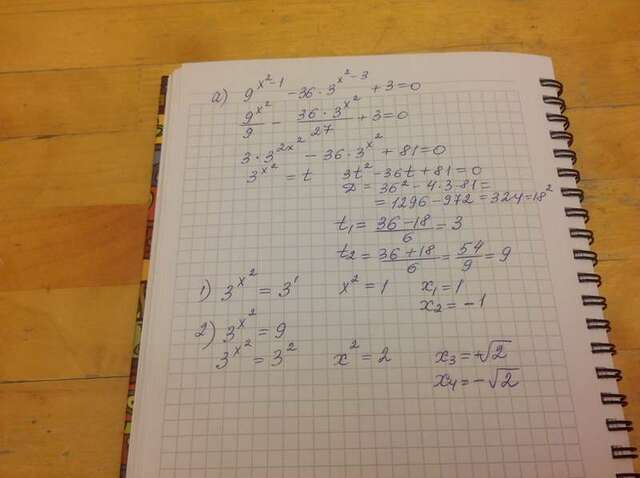 а) 9^{x²-1} - 36·3^{x²-3} + 3 = 0
9^{x²}/9 - 36·3^{x²}/27 + 3 = 0
3·3^{2x²} - 36·3^{x²} + 81 = 0
3^{x²} = t 3t² - 36t + 81 = 0
D = 36² - 4·3·81 =
= 1296 - 972 = 324 = 18²
t₁ = (36-18)/6 = 3
t₂ = (36+18)/6 = 54/9 = 9
1) 3^{x²} = 3¹ x² = 1 x₁ = 1
x₂ = -1
2) 3^{x²} = 9
3^{x²} = 3² x² = 2 x₃ = +√2
x₄ = -√2